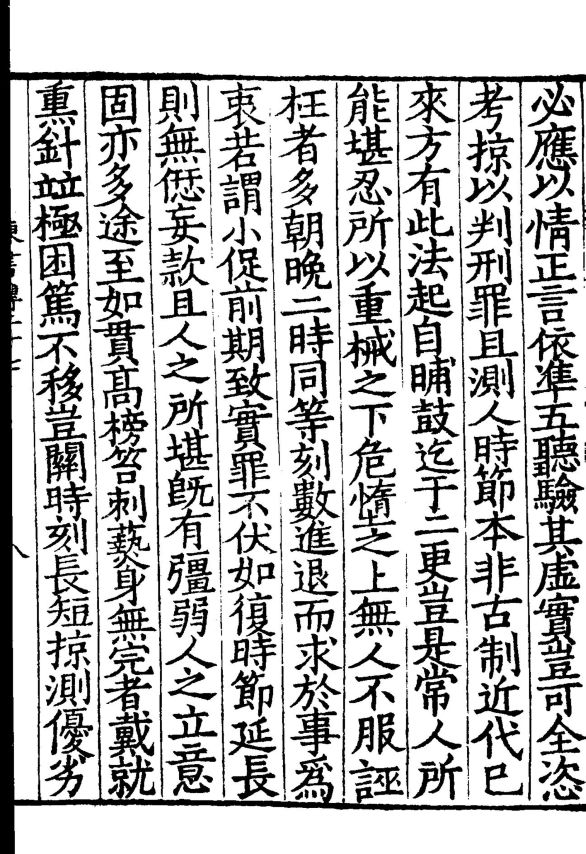 必應以情正言依準五聽驗其虛實豈可全恣
考掠以判刑罪且測人時節本非古制近代已
來方有此法起自晡鼓迄于二更豈是常人所
能堪忍所以重械之下危惰之上無人不服誣
枉者多朝晚二時同等刻數進退而求於事為
衷若謂小促前期致實罪不伏如復時節延長
則無愆妄款且人之所堪旣有彊弱人之立意
固亦多途至如貫高榜笞刺爇身無完者戴就
熏針竝極困篤不移豈關時刻長短掠測優劣